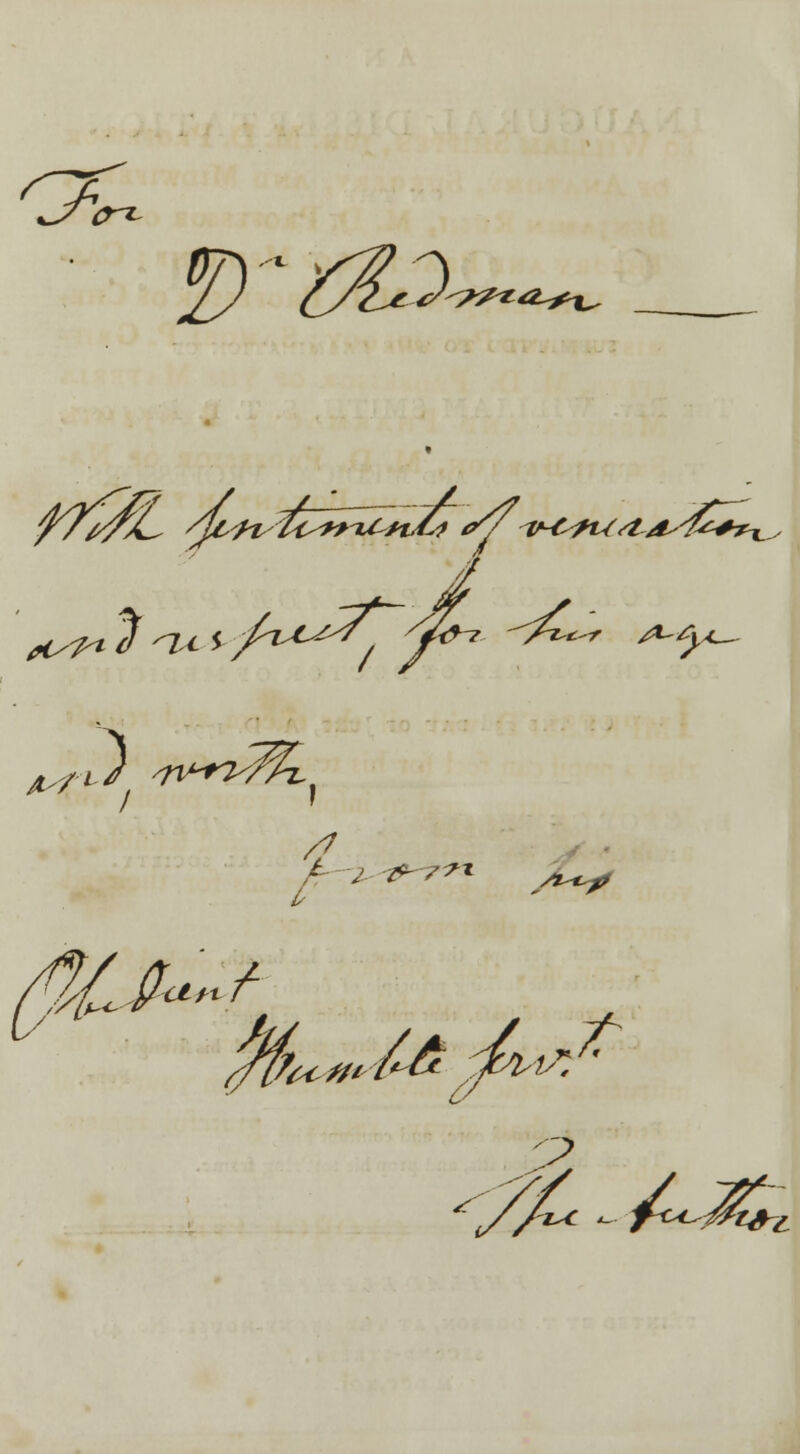 For
Dr Redman
With sentiments of veneration
and respect, for his age
and, worth,
from his
Obedient
Humble servt.
The Author